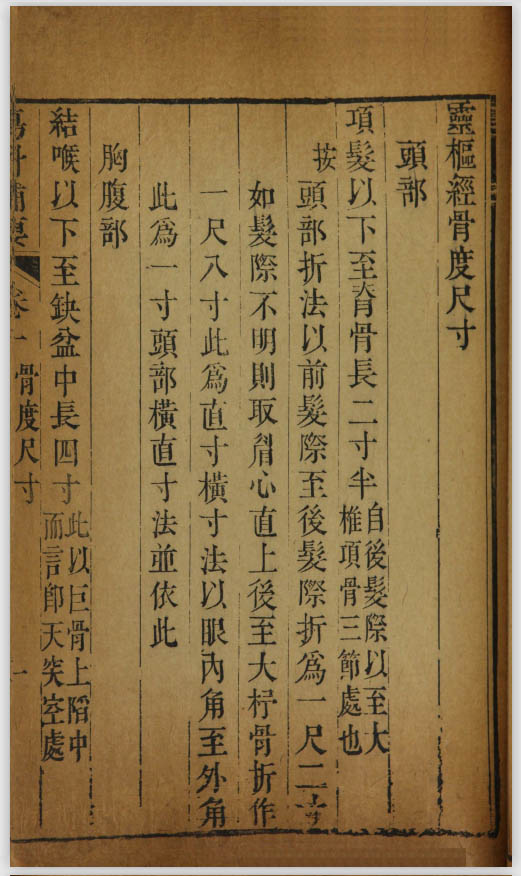 靈樞經骨度尺寸
頭部
項髮以下至脊骨長二寸半自後髮際以至大椎項骨三節處也
按頭部折法以前髮際至後髮際折爲一尺二寸
如髮際不明則取眉心直上後至大杼骨折作
一尺八寸此爲直寸橫寸法以眼內角至外角
此爲一寸頭部橫直寸法並依此
胸腹部
結喉以下至鈌盆中長四寸此以巨骨上陷中而言卽天突空處
傷科補要 卷一 骨度尺寸 一